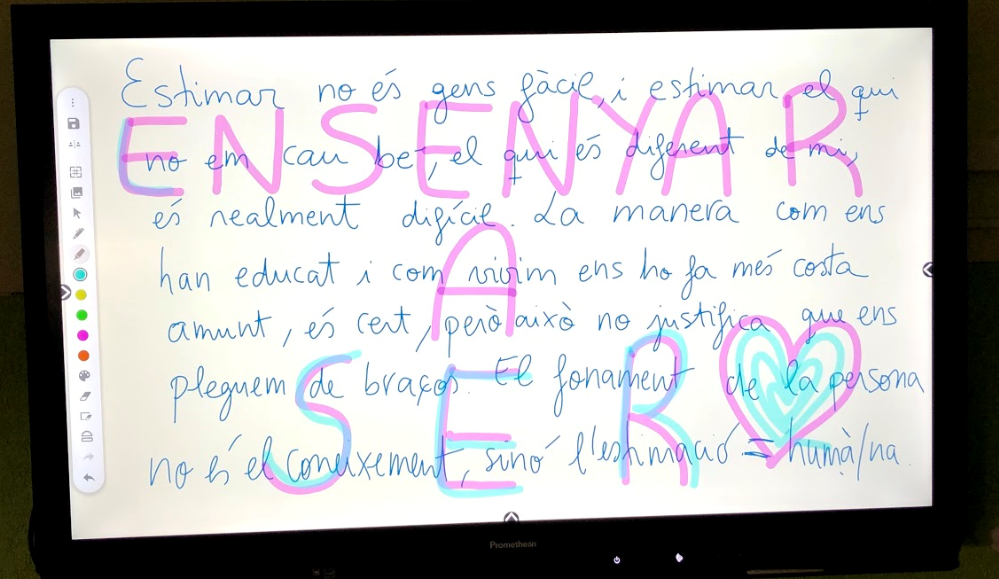 Estimar no és gens fàcil, i estimar el qui
no em cau bé, el qui és diferent de mi,
és realment difícil. La manera com ens
han educat i com vivim ens ho fa més costa
amunt, és cert, però això no justifica que ens
pleguem de braços. El fonament de la persona
no és el coneixement, sinó l'estimació = humà/na
ENSENYAR
A
SER
Promethean